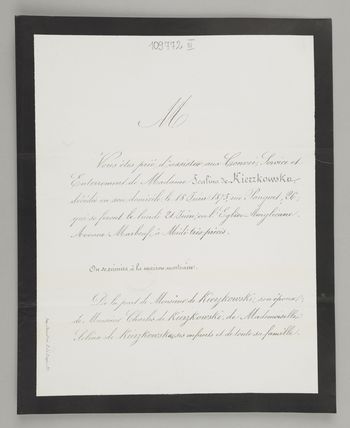 109772 III
M
Vous êtes prié d'assister aux Convoi, Service et
Enterrement de Madame de Kierzkowska,
décédée en son domicile, le 18 Juin 1875, rue 26,
qui se feront le lundi 21 Juin, en l'Eglise Anglicane
Avenue Marbeuf, à Midi très précis.
On se réunira à la maison mortuaire.
De la part de Monsieur de Kierzkowski, son époux,
de Monsieur Charles de Kierzkowski, de Mademoiselle
de Kierzkowska, ses enfants et de toute sa famille.